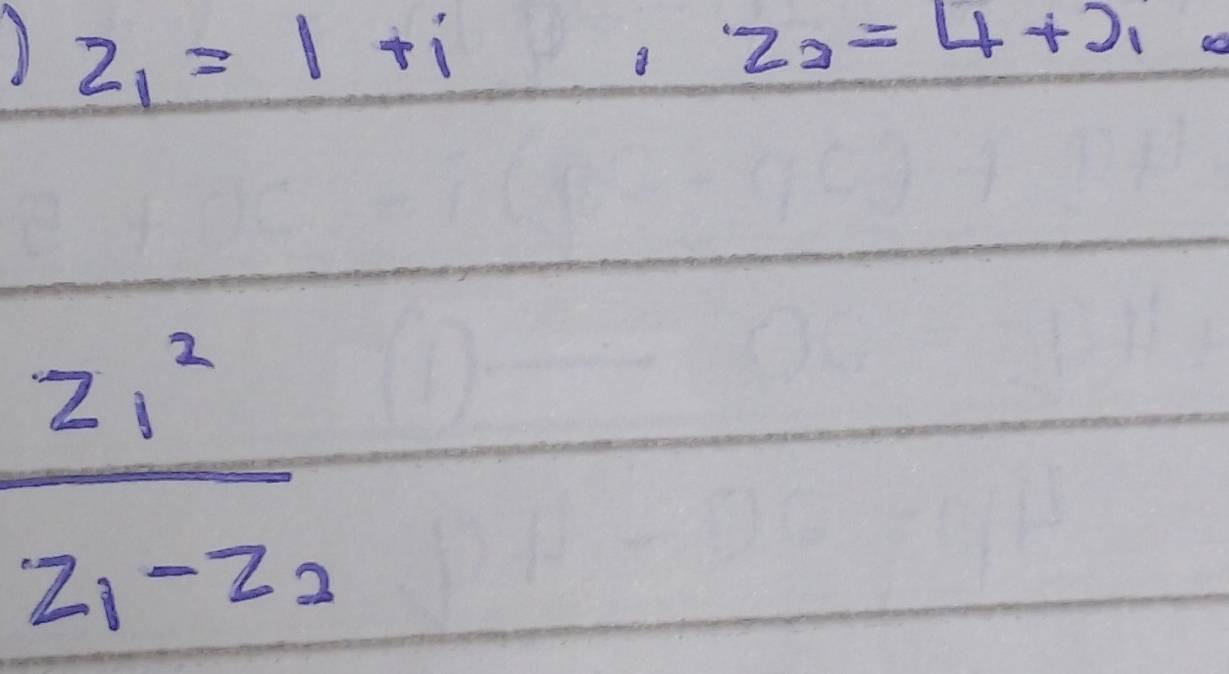 ) z₁ = 1 + i , z₂ = 4 + 2i
z₁²
z₁ - z₂